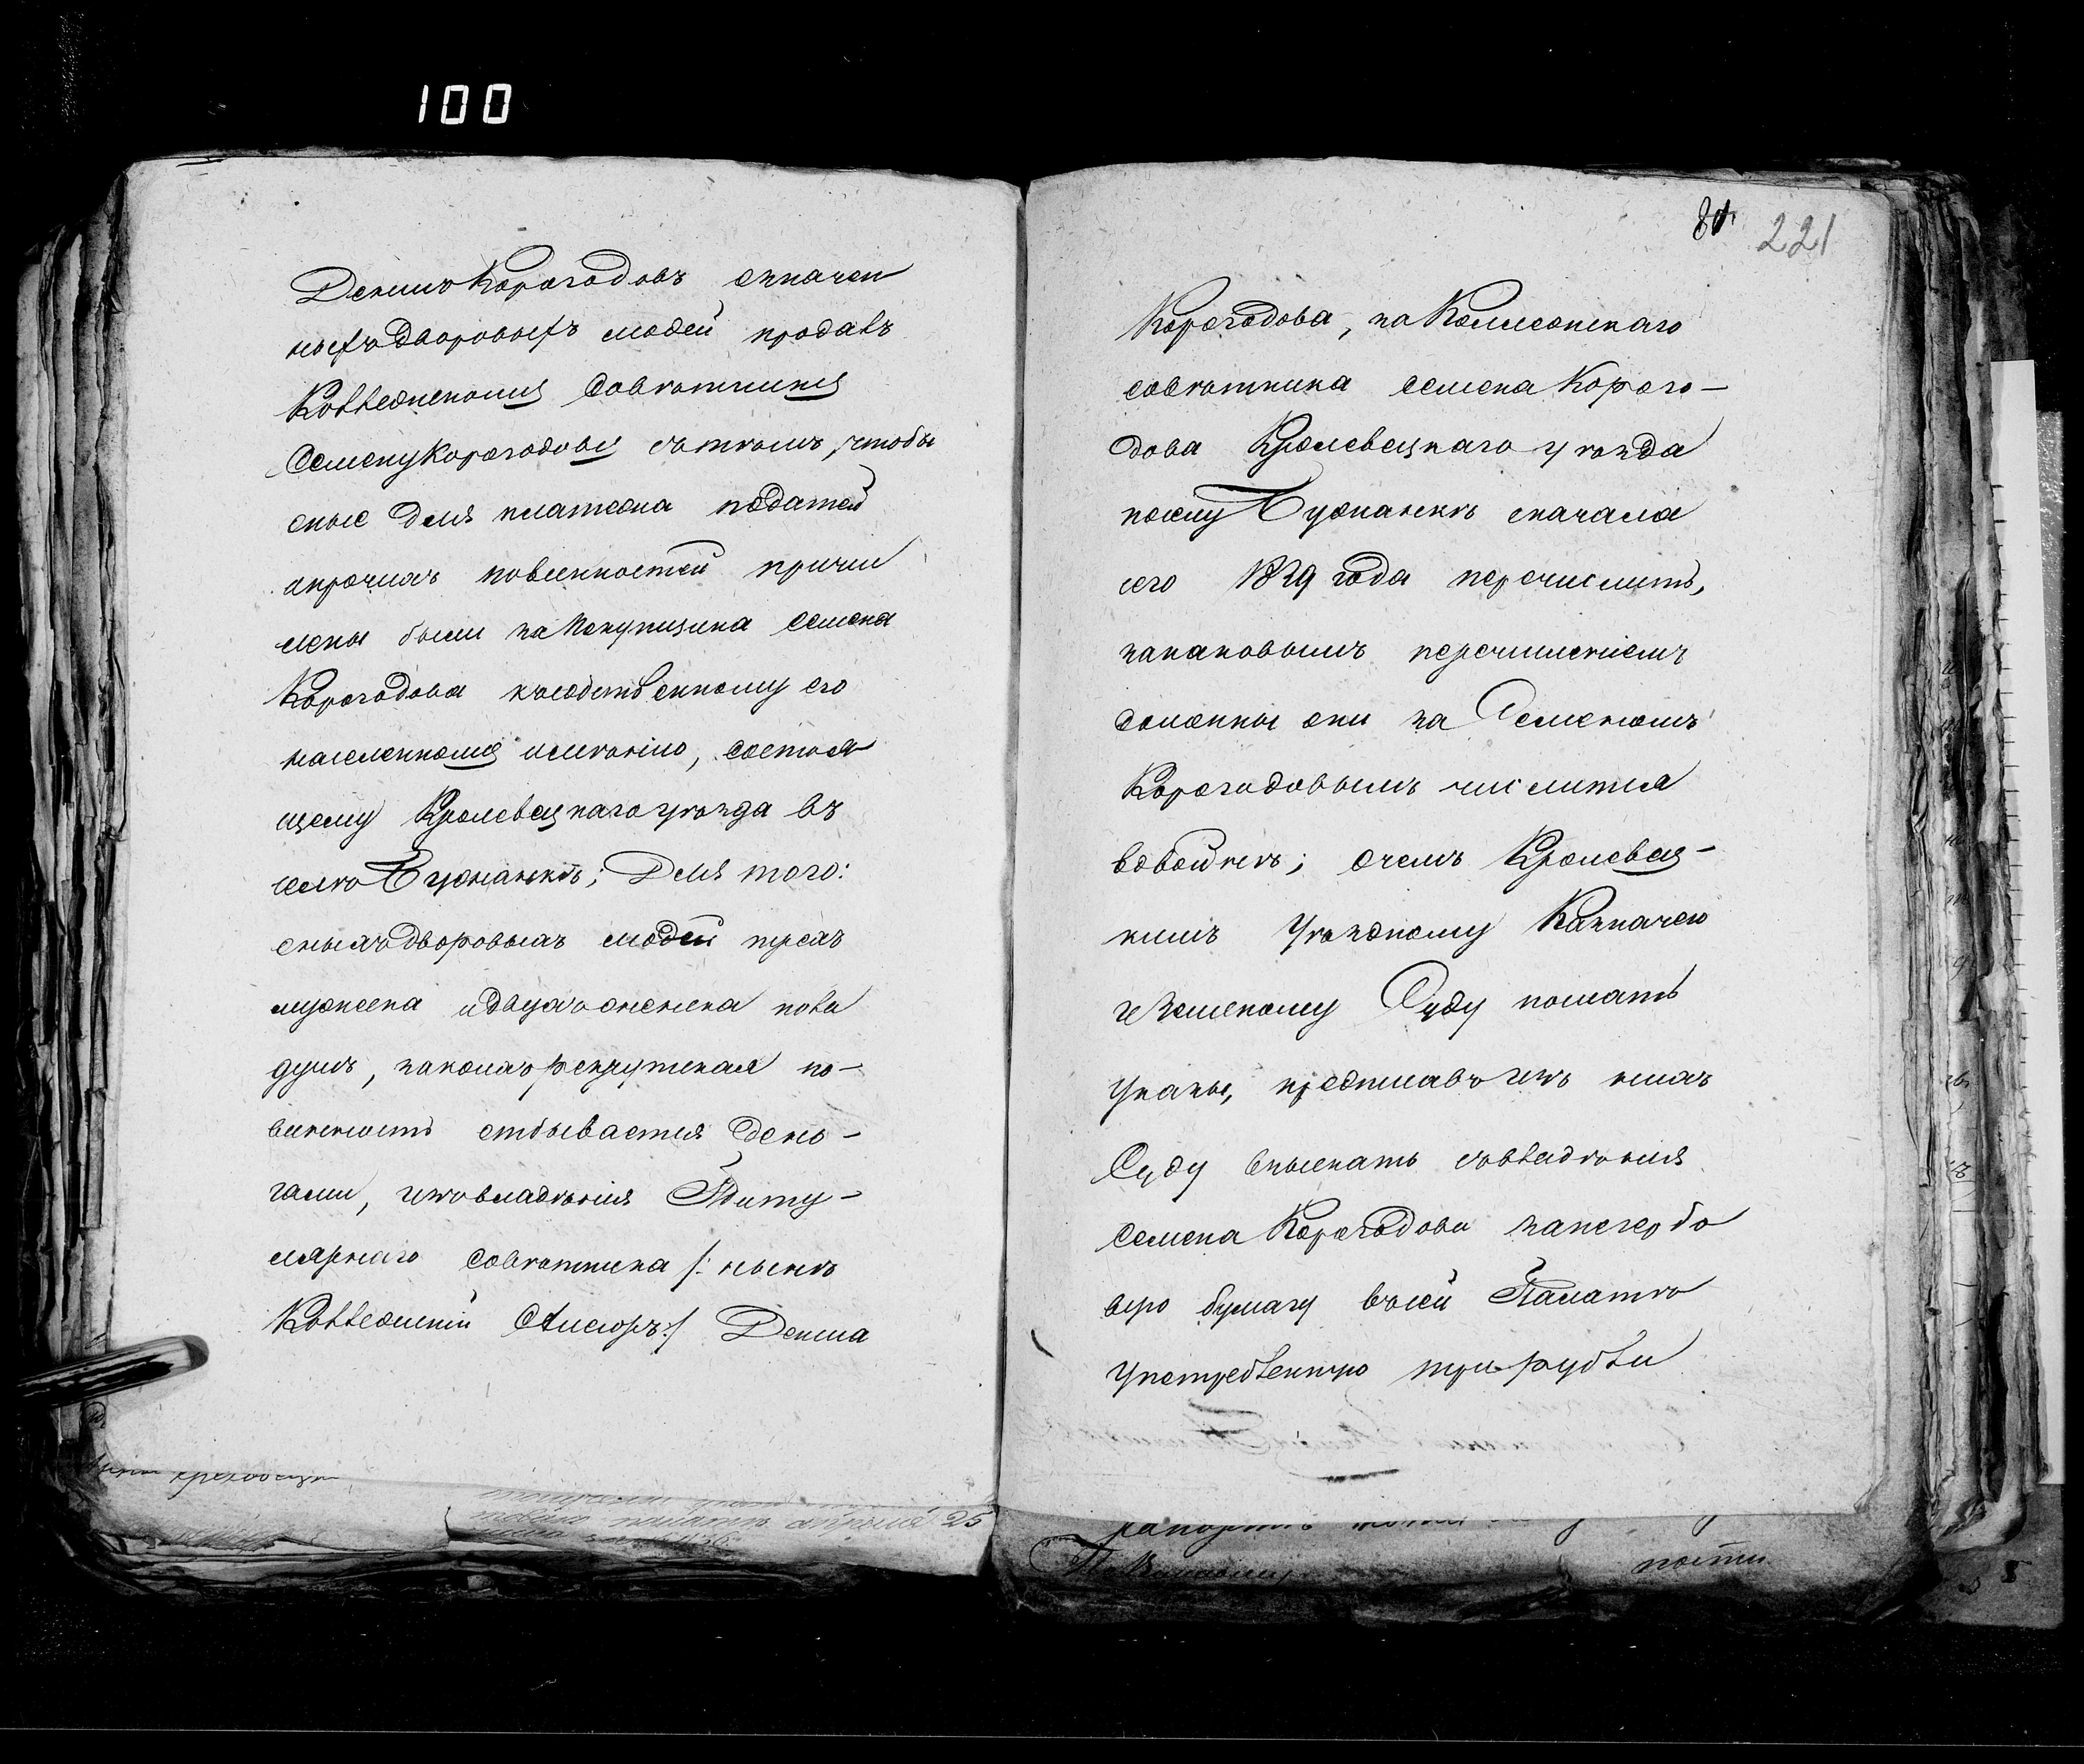 100
Денисъ Корогодовъ означен
ныхъ дворовыхъ людей продалъ
Коллежскому Совѣтнику
Семену Корогодову съ тѣмъ, чтобы
оные для платежа податей
и прочихъ повинностей причи
слены были за покупщика Семена
Корогодова къ собственному его
населенному имѣнію, состоя
щему Кролевецкаго уѣзда въ
селѣ Бужанкѣ; Для того:
оныхъ дворовыхъ людей трехъ
мужеска и двухъ женска пола
душъ, за коихъ рекрутская по-
винность отбывается день-
гами, изъ владѣнія Титу-
лярнаго Совѣтника /: нынѣ
Коллежскій Асессоръ :/ Дениса
81.
221
Корогодова, за Коллежскаго
совѣтника Семена Корого-
дова Кролевецкаго уѣзда
по селу Бужанкѣ сначала
сего 1829 года перечислить,
за каковымъ перечисленіемъ
должны они за Семеномъ
Корогодовымъ числится
въ окладѣ; о чемъ Кролевец-
кимъ Уѣздному Казначею
и Земскому Суду послать
Указы, предписавъ изъ нихъ
Суду взыскать съ владѣнія
Семена Корогодова за негербо
вую бумагу въ сей Палатѣ
употребленную три рубли
палатѣ апрѣля 25
почти